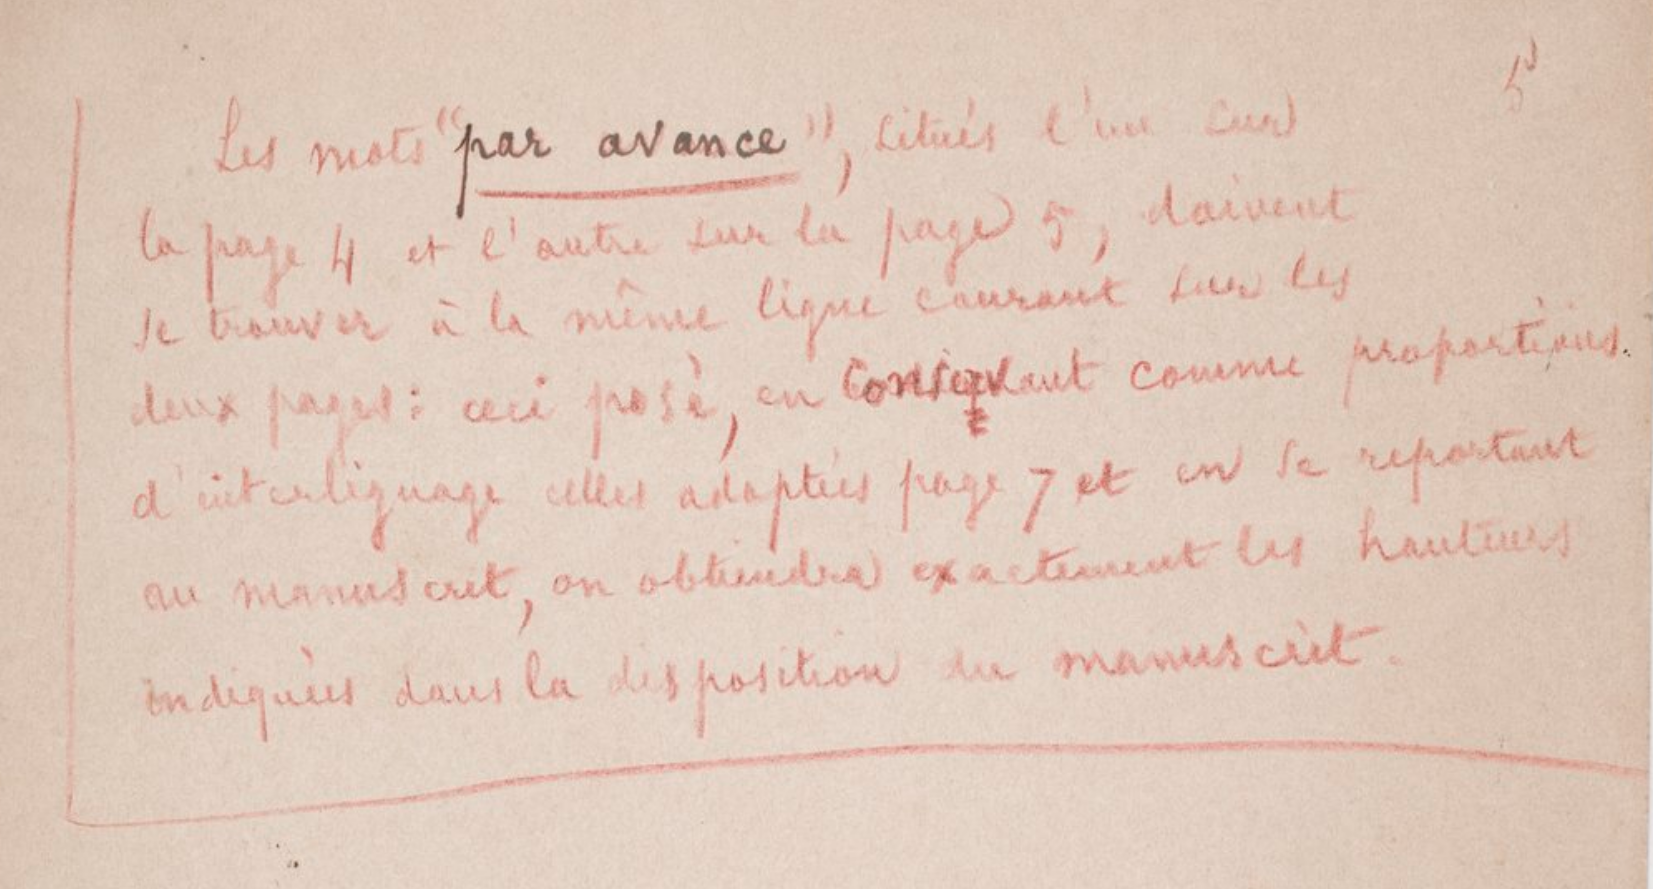 5
Les mots "par avance", situés l'un sur
la page 4 et l'autre sur la page 5, doivent
se trouver à la même ligne courant sur les
deux pages : ceci posé, en conservant comme proportions
d'interlignage celles adoptées page 7 et en se reportant
au manuscrit, on obtiendra exactement les hauteurs
indiquées dans la disposition du manuscrit.